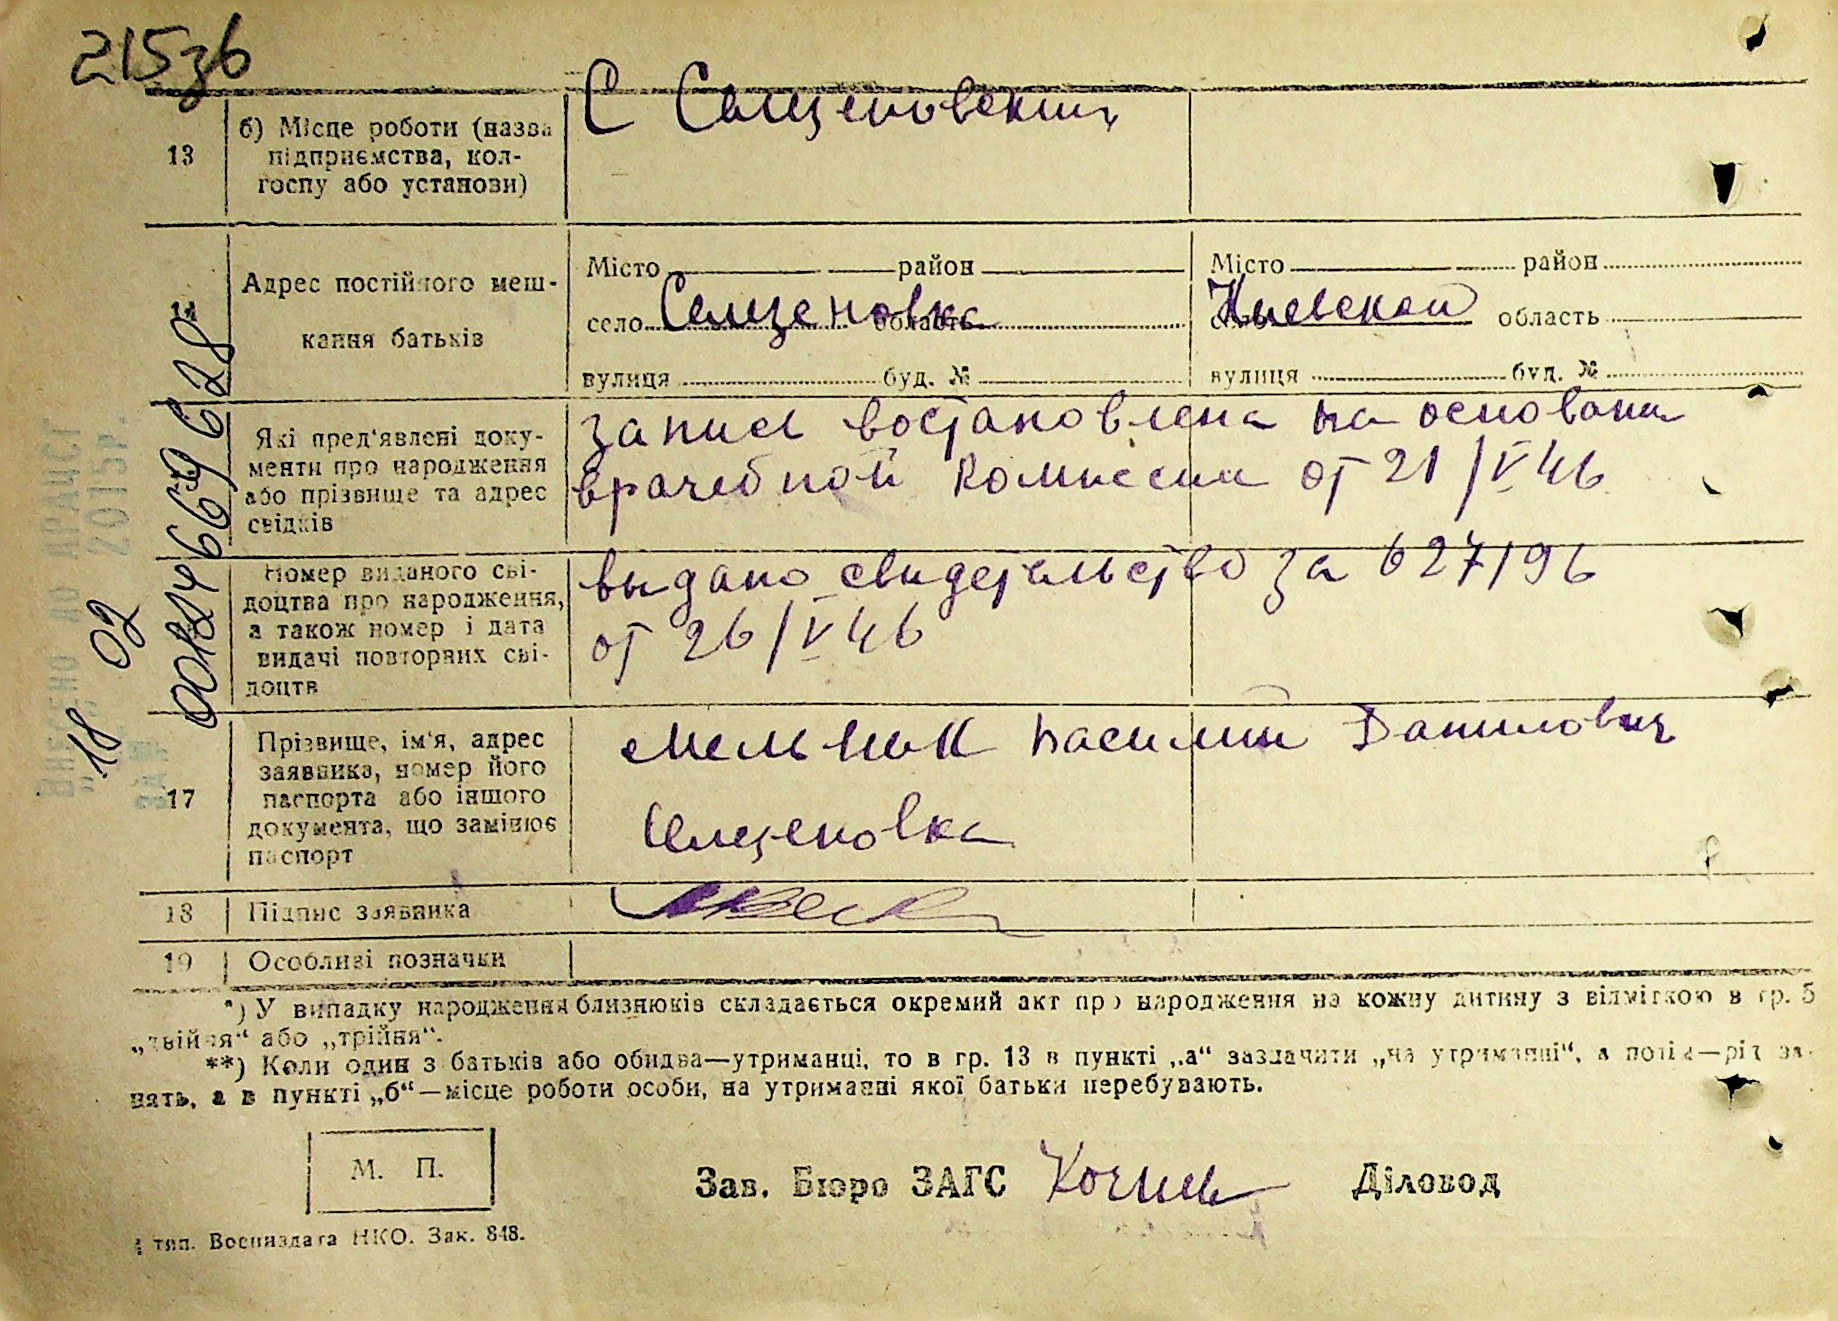 215зб
13
б) Місце роботи (назва
підприємства, кол-
госпу або установи)
Адрес постійного меш-
кання батьків
Місто район
село Селщеновка область
вулиця буд. №
Місто район
Киевской область
вулиця буд. №
Які пред'явлені доку-
менти про народження
або прізвище та адрес
свідків
запись востановлена на основани
врачебной комиссии от 21/V 46
Номер виданого сві-
доцтва про народження,
а також номер і дата
видачі повторних сві-
доцтв
выдано свидетельство за 627196
от 26/V 46
17
Прізвище, ім'я, адрес
заявника, номер його
паспорта або іншого
документа, що замінює
паспорт
Мельник Василий Данилович
Селщеновка
18
Підпис заявника
19
Особливі позначки
*) У випадку народження близнюків складається окремий акт про народження на кожну дитину з відміткою в гр. 5
„двійня“ або „трійня“.
**) Коли один з батьків або обидва—утриманці, то в гр. 13 в пункті „а“ зазначити „на утриманні“, а потім—рід за-
нять, а в пункті „б“—місце роботи особи, на утриманні якої батьки перебувають.
М. П.
Зав. Бюро ЗАГС
Діловод
тип. Воениздата НКО. Зак. 848.
18 02
2015р.